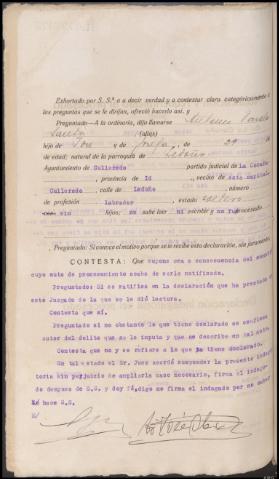 Exhortado por S. Sª. a a decir verdad y a contestar clara categóricamente a
las preguntas que se le dirijan, ofreció hacerlo así, y
Preguntado.—A lo ordinario, dijo llamarse
(alias)
hijo de José y de Josefa de 29
de edad; natural de la parroquia de Ledoño
Ayuntamiento de Culleredo partido judicial de la Coruña
, provincia de Id , vecino de esta capital
Culleredo , calle de Ledoño , número
de profesión Labrador , estado soltero
sin hijos; no sabe leer ni escribir y no fué
Preguntado: Si conoce el motivo porque se le recibe esta declaración, sin juramento,
CONTESTA: Que supone era a consecuencia del
cuyo auto de procesamiento acaba de serle notificado.
Preguntado: Si se ratifica en la declaración que ha prestado
este Juzgado de la que se le dió lectura.
Contesta que sí.
Preguntado si no obstante lo que tiene declarado se confiesa
autor del delito que se le imputa y que se describe en el auto
Contesta que no y se refiere a lo que ya tiene declarado.
En tal estado el Sr. Juez acordó suspender la presente indaga
toria sin perjuicio de ampliarla caso necesario, firma el indaga
do despues de S.S. y doy fé, digo no firma el indagado por no saber
Lo hace S.S.